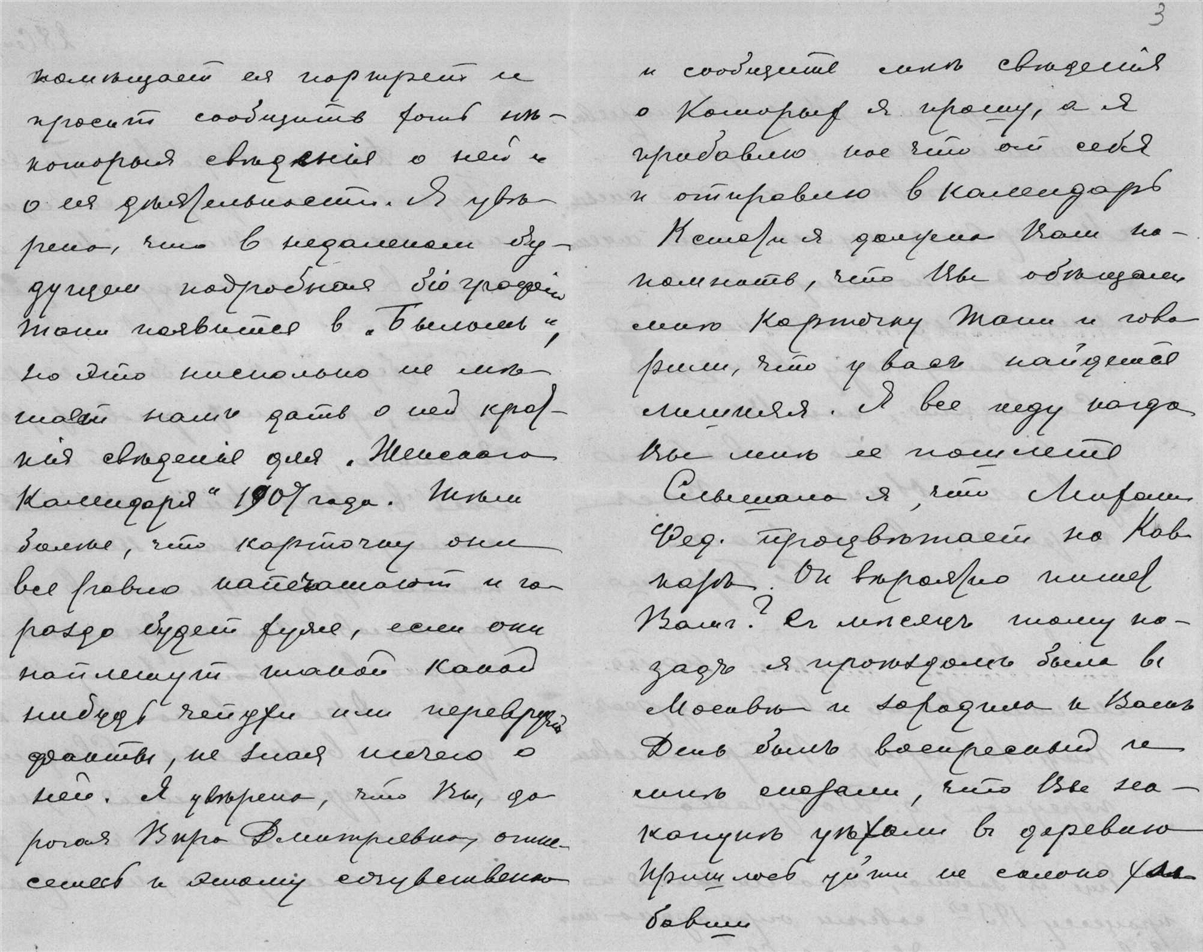 помѣщает ея портрет и
просит сообщить хоть нѣ-
которыя свѣдѣнія о ней и
о ея дѣятельности. Я увѣ
рена, что в недалеком бу-
дущем подробная біографія
Тани появится в „Былом“,
но это нисколько не мѣ
шает нам дать о ней крат-
кія свѣдѣнія для „Женскаго
Календаря“ 1907 года. Тѣм
болѣе, что карточку они
все равно напечатают и го
раздо будет хуже, если они
наплетут такой какой
нибудь чепухи или переврут
факты, не зная ничего о
ней. Я увѣрена, что Вы, до
рогая Вѣра Дмитріевна, отне-
сетесь к этому сочувственно
3
и сообщите мнѣ свѣдѣнія
о которых я прошу, а я
прибавлю кое что от себя
и отправлю в календарь
Кстати я должна Вам на-
помнить, что Вы обѣщали
мнѣ карточку Тани и гово
рили, что у васъ найдется
лишняя. Я все жду когда
Вы мнѣ ее пошлете
Слышала я, что Михаил
Фед. процвѣтает на Кав-
казѣ. Он вѣроятно пишет
Вам? Съ мѣсяцъ тому на-
задъ я проѣздомъ была в
Москвѣ и заходила к Вамъ
День былъ воскресный и
мнѣ сказали, что Вы на-
канунѣ уѣхали в деревню
Пришлось уйти не солоно хле
бавши